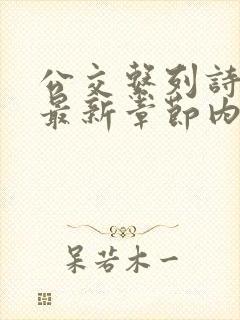 公交繫列詩
最新章節內
呆若木一